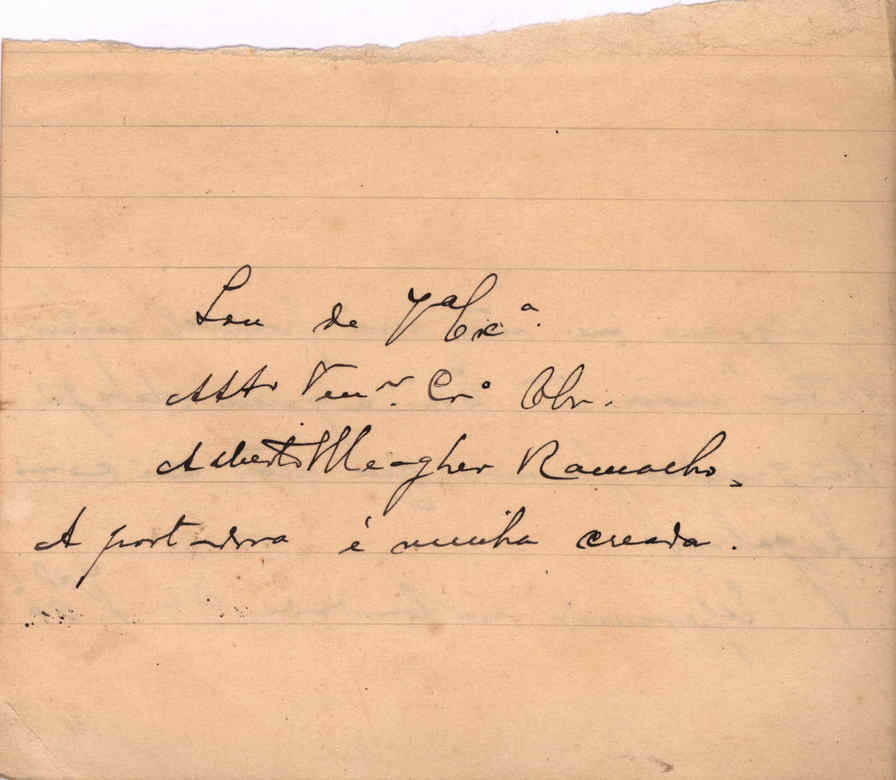 Sou de Vª Excª.
Atto Venr. Cro Obr.
Alberto Meagher Ramalho,
A portadora é minha creada.